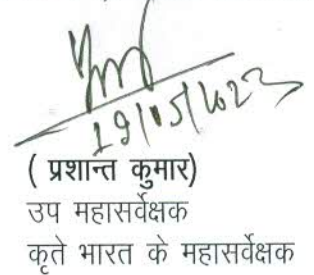 19/05/2023
( प्रशान्त कुमार)
उप महासर्वेक्षक
कृते भारत के महासर्वेक्षक